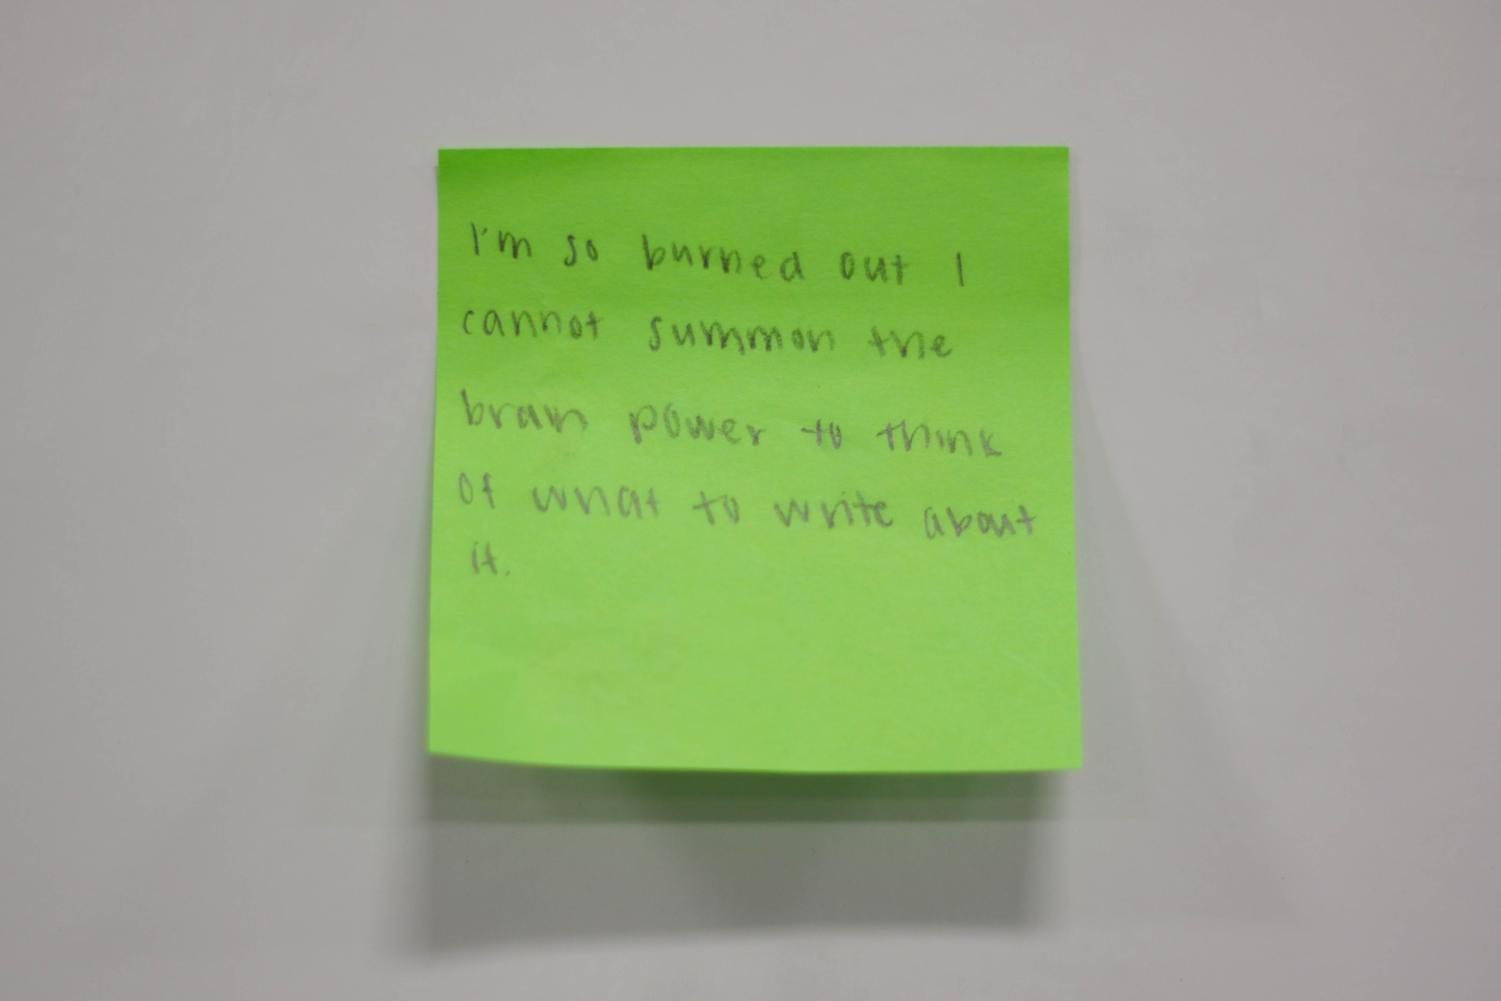 I'm so burned out I
cannot summon the
brain power to think
of what to write about
it.